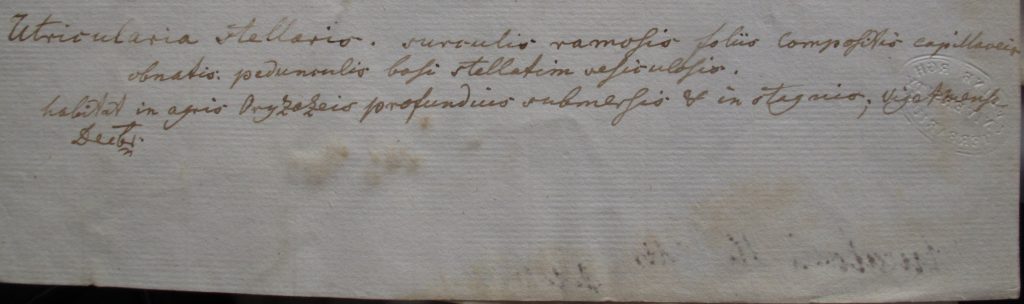 Utricularia stellaris. surculis ramosis foliis compositis capillaceis
obnatis. pedunculis basi stellatim vesiculosis.
habitat in agris Oryzazeis profundius submersis & in stagnis, viget mense
Decbr.